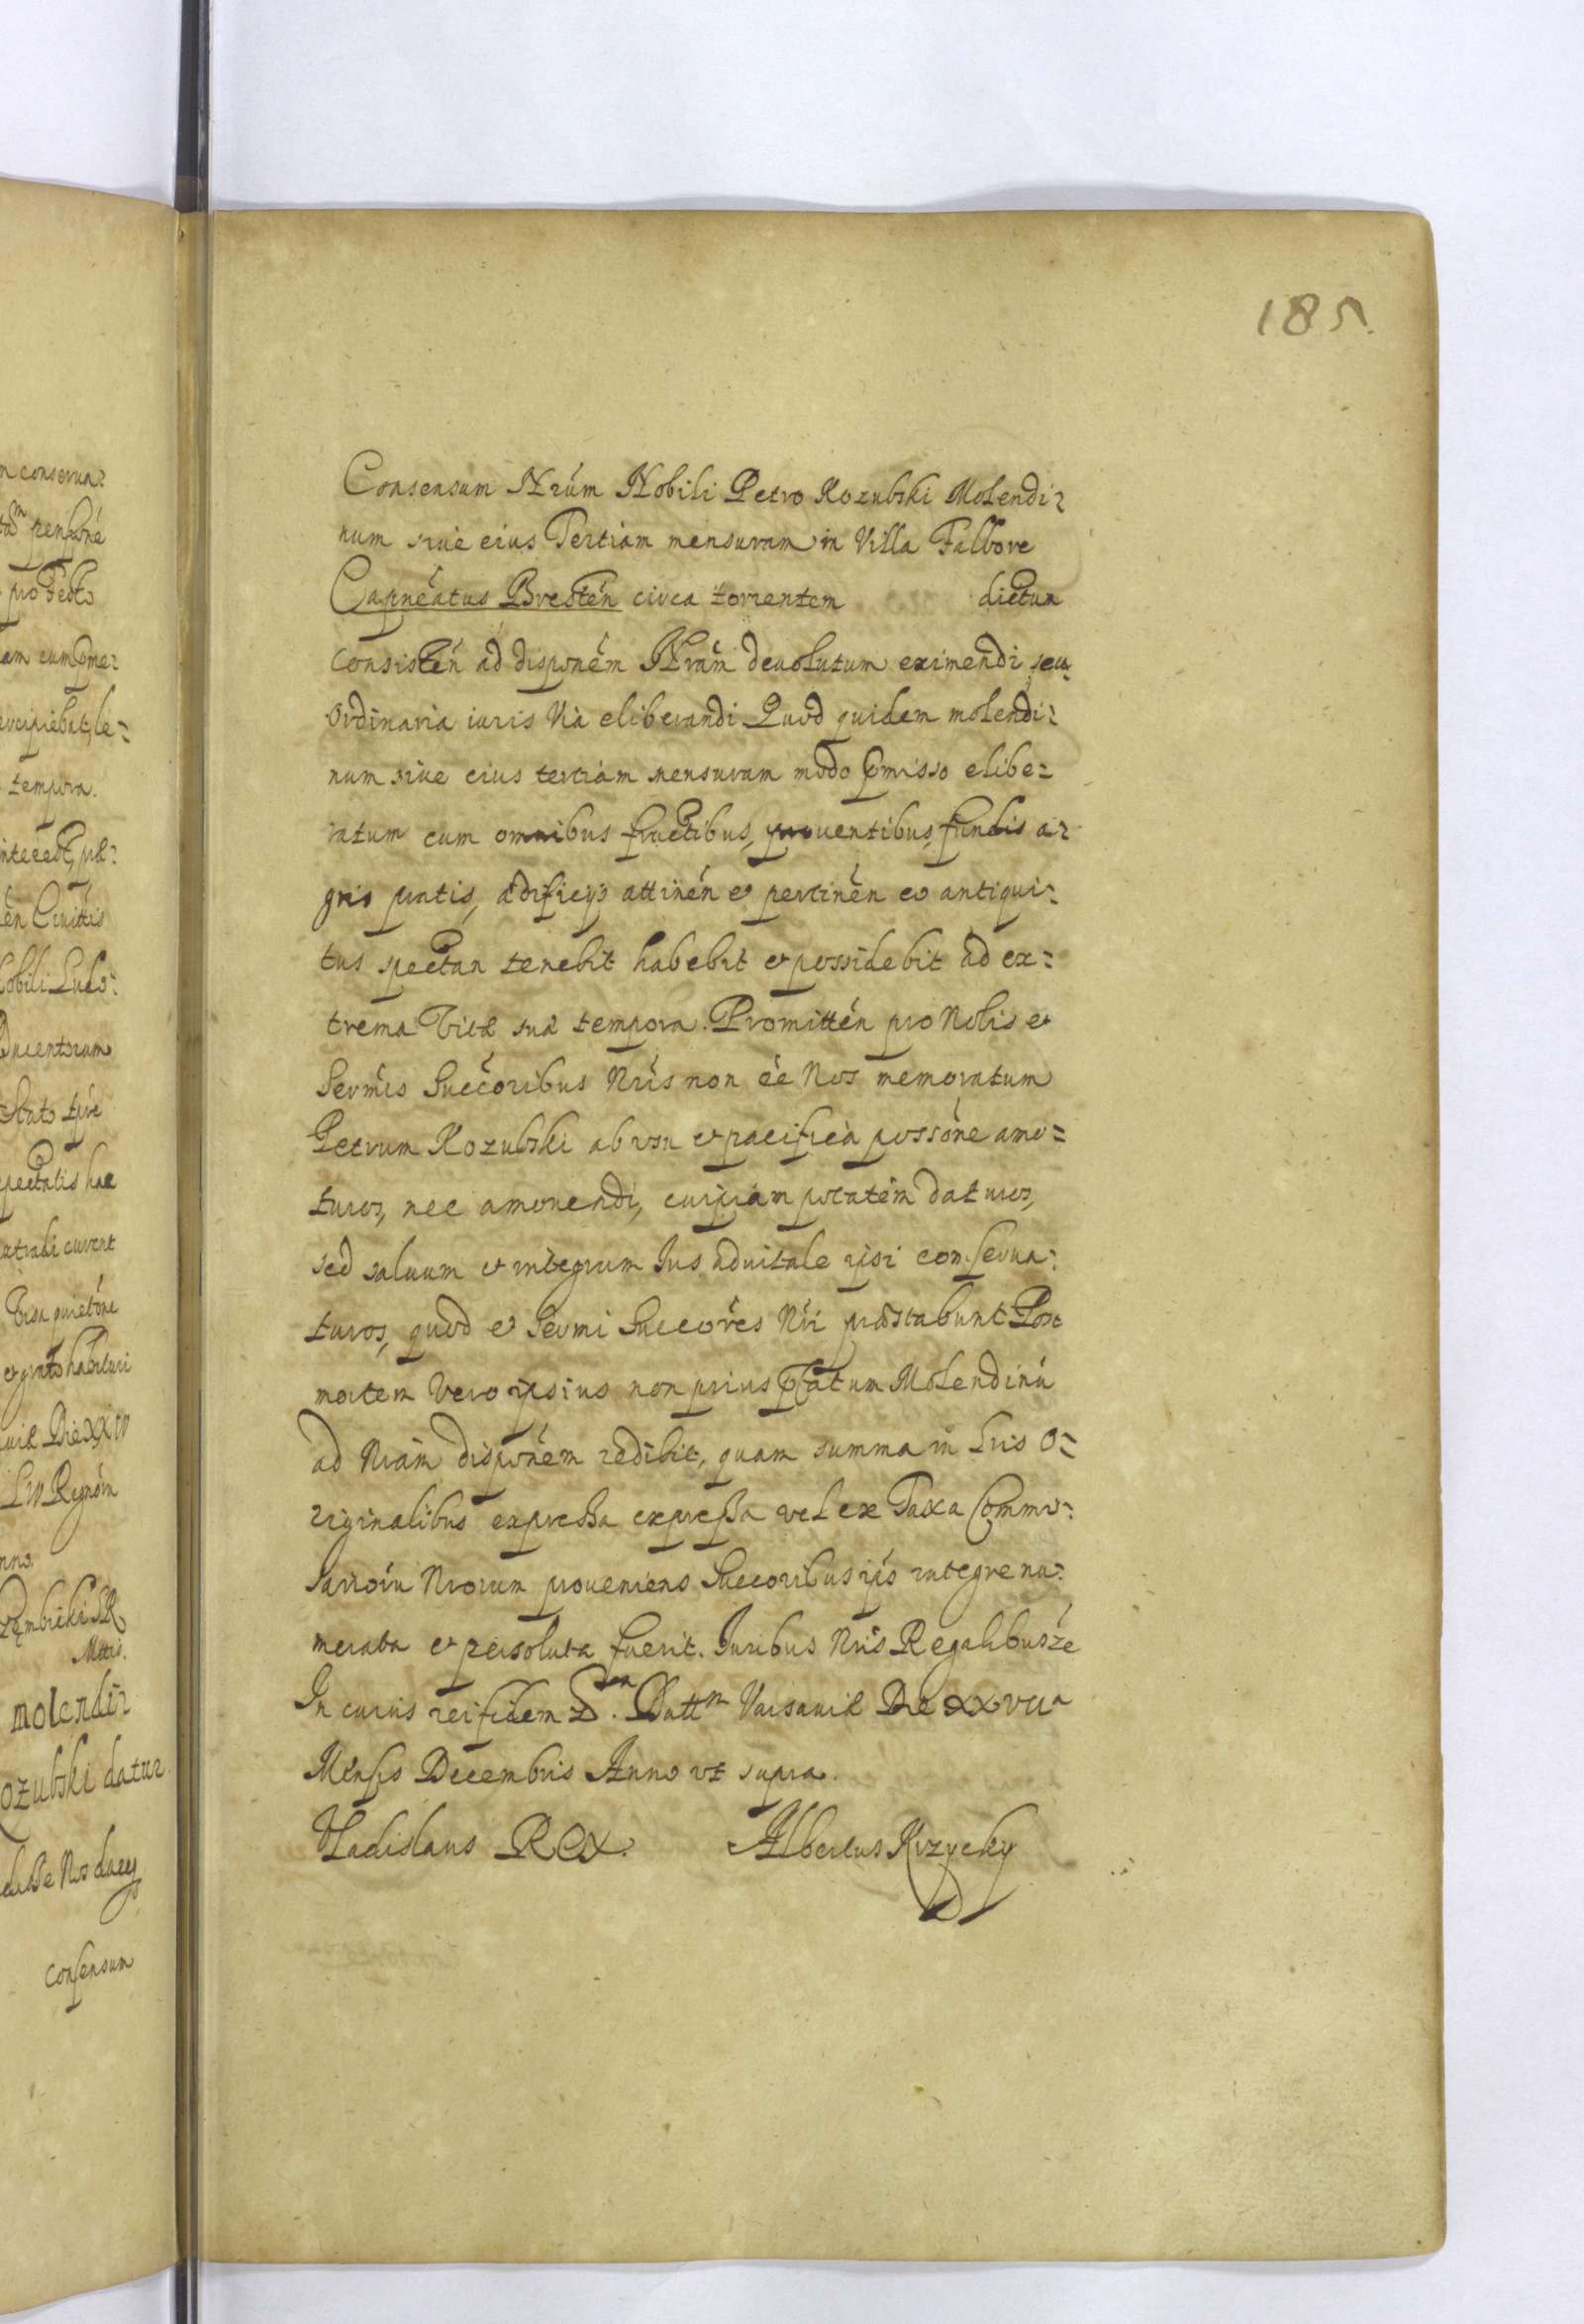 185.
Consensum Nrúm Nobili Petro Kozubski Molendi-
num siue eius Tertiam mensuram in Villa Falbore
Capnéatus Brestén circa torrentem dictum
consistén ád disponém Nrám deuolutum eximendi seu
Ordinaria iuris via eliberandi Quod quidem molendi-
num siue eius tertiam mensuram modo pmisso elibe-
ratum cum omnibus fructibus, prouentibus, fundis a-
gris pratis, ædificijs attinén et pertinén ex antiqui-
tus spectan tenebit habebit et possidebit ad ex-
trema Vitæ suæ tempora. Promittén pro Nobis et
Sermis Succoribus Nris non ée Nos memoratum
Petrum Kozubski ab vsu et pacifica possóne amo-
turos, nec amouendi, cuipiam ptatém daturos,
sed saluum et integrum Ius aduitale ipsi conserua-
turos, quod et Sermi Succores Nri præstabunt Post
mortem Vero ipsius non prius ptatum Molendinú
ad Nrám disponém redibit, quam summa in Lris O-
riginalibus expressa expressa vel ex Taxa Commis-
sariorú Nrorum proueniens Succoribus ips integre nu-
merata et persoluta fuerit. Iuribus Nris Regalibus ée
In cuius rei fidem Dattm Varsauiæ Die XXVIIa
Mensis Decembris Anno vt supra.
Vladislaus REX. Albertus Krzycky
n conserua-
pensioné
pro festo
am cum
tempora.
én Ciuittis
obili Ludo-
Ducentorum
spectatis hac
curent
et grato habituri
uiæ Die XXIV
nno.
Mttis.
molendi-
ozubski datur
Nos
consensum